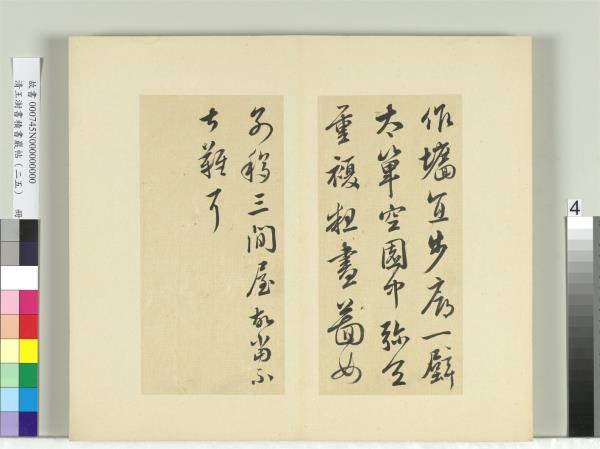 作墻步廊一壁
太單空園中弥
重複粗畫圖如
移三間屋故當不
大難耳
故書 000745N000000000
清王澍書積書巖帖（二五） 冊
4